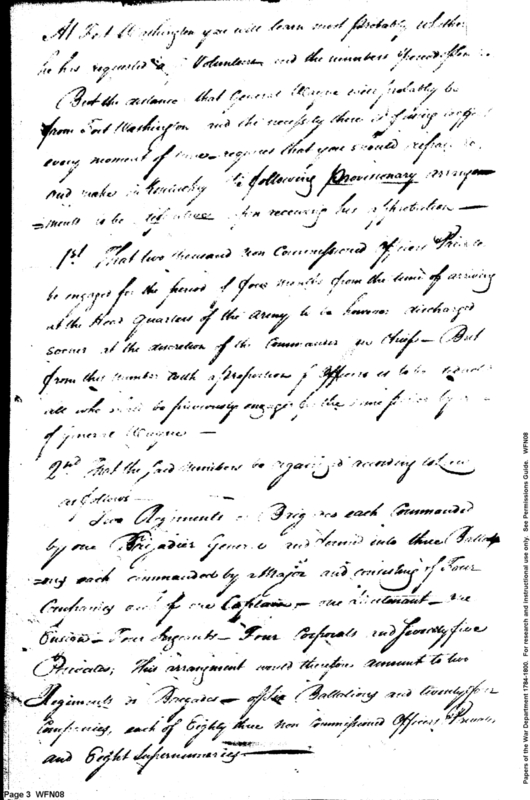 At Fort Washington you will learn most probably whether
he has requested a Volunteers and the numbers
But the distance that General Wayne will probably be
from Fort Washington and the necessity there is of using
every moment of time requires that you should
and make in Kentucky the following provisionary arrange=
=ments to be upon receiving his approbation —
1st. That two thousand non Commissioned Officers & Privates
be engaged for the period of four months from the time of arriving
at the Head Quarters of the Army to be however discharged
sooner at the discretion of the Commander in Chief — But
from this number with a proportion of Officers is to be
all who shall be previously engaged for the same period by
of General Wayne —
2nd That the said numbers be organized according to Law
as follows —
Two Regiments or Brigades each Commanded
by one Brigadier General and formed into three Battali=
=ons each commanded by a Major and consisting of Four
Companies each of one Captain — one Lieutenant — one
Ensign — Four Sergeants — Four Corporals and Seventy five
Privates; This arrangement would therefore amount to two
Regiments or Brigades — of six Battalions and twenty four
Companies, each of Eighty three non Commissioned Officers & Privates
and Eight Supernumeraries —
Page 3 WFN08
Papers of the War Department 1784-1800. For research and instructional use only. See Permissions Guide. WFN08